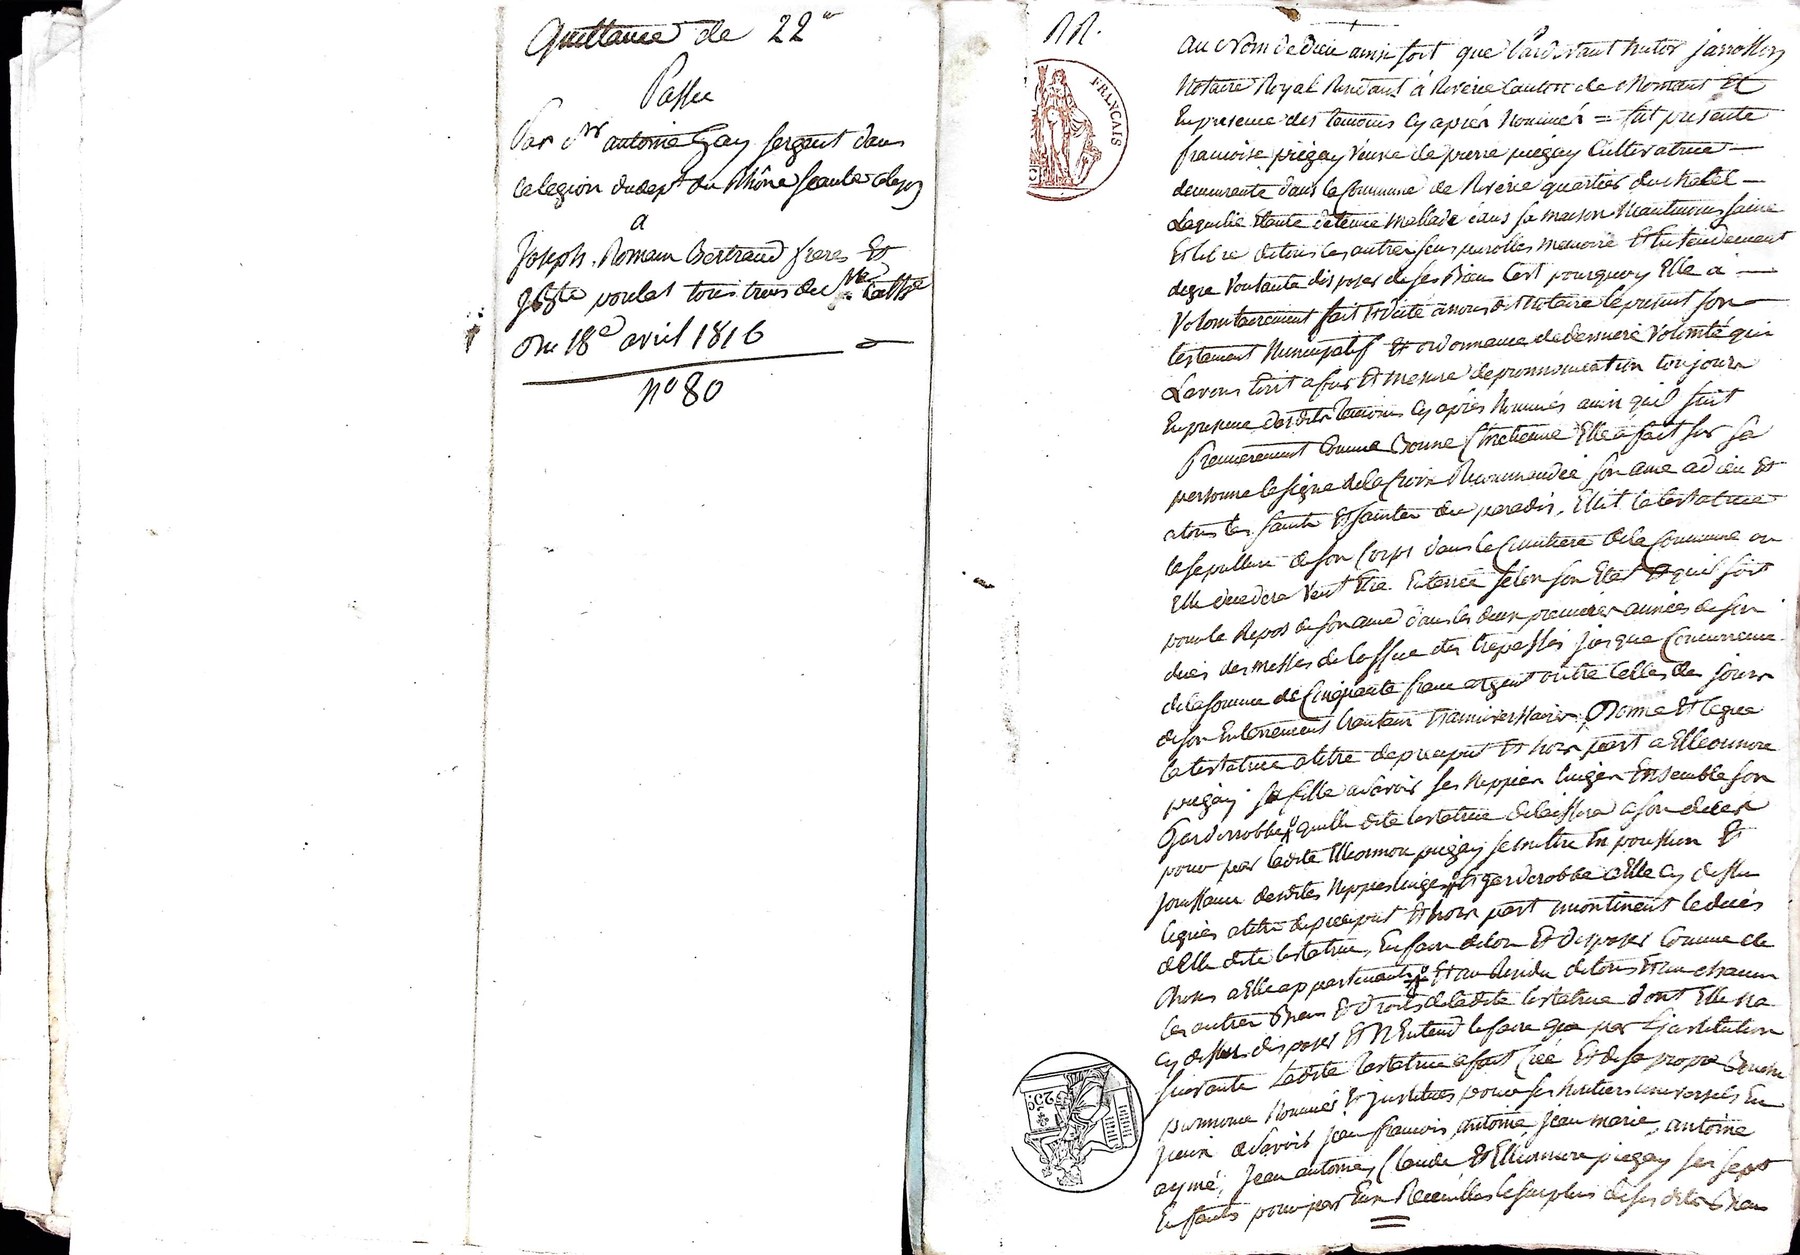 Quittance de 22#
Passée
Par Mr antoine Gay sergent dans
la legion du dept du Rhône
a
Joseph, Romain Bertrand freres Et
poulat tous trois de Ste Cathe
Du 18e avril 1816
no 80
RR.
FRANÇAIS
25C
au Nom de dieu ainsi soit que Pardevant victor jarrosson
Notaire Royal Residant à Riverie Canton de Mornant Et
En presence des temoins cy après Nommés = fut presente
francoise piégay veuve de pierre piegay Cultivatrice
demeurante dans la Commune de Riverie quartier du
Laquelle Etante detenue mallade dans sa maison Neantmoins saine
Et libre de tous les autres sens parolles memoire Et Entendement
Voulante disposer de ses Biens C'est pourquoy Elle a
Volontairement fait Et dicté a nous dit Notaire le present son
testament Nuncupatif Et ordonnance de derniere Volonté qui
L'avons Ecrit a fur Et mesure de prononciation toujours
En presence desdits temoins cy après Nommés ainsi quil suit
Premierement Comme Bonne Chretienne Elle a fait sur sa
personne le signe de la Croix Recommandée son ame a dieu Et
a tous les saints Et saintes du paradis, Elit la testatrice
la sepulture de son Corps dans le Cimitiere de la Commune ou
Elle decedera Veut Etre Enterrée selon son Etat Et quil soit
pour le Repos de son ame dans les deux premieres années de son
dies des messes de l'office des trepassés jusque Concurrence
de la somme de Cinquante francs argent outre Celles des jours
de son Enterrement Et anniversaires, Donne Et legue
la testatrice a titre de preciput Et hors part a Elleonnore
piegay sa fille a savoir ses Nippes linges Ensemble son
Garderobbe quelle dite testatrice delaissera a son decès
pour par ladite Elleonnore piegay se mettre En possession Et
jouissance desdites Nippes linges Et garderobbe a Elle cy dessus
legués a titre de preciput Et hors part incontinent le decès
d'Elle dite testatrice, En faire de son Et disposer Comme de
Choses a Elle appartenants Et au Residu de tous Et un chacun
les autres Biens Et droits de ladite testatrice dont Elle na
cy dessus disposer Et N'Entend le faire que par l'institution
suivante Ladite testatrice a fait Créé Et de sa propre Bouche
prononcé Nommés Et institués pour ses heritiers universels En
a savoir jean francois, antoine, jean marie, antoine
aymé, jean antoine, Claude Et Elleonnore piegay ses sept
Enfants pour par Eux Recueillir le surplus de ses dits Biens